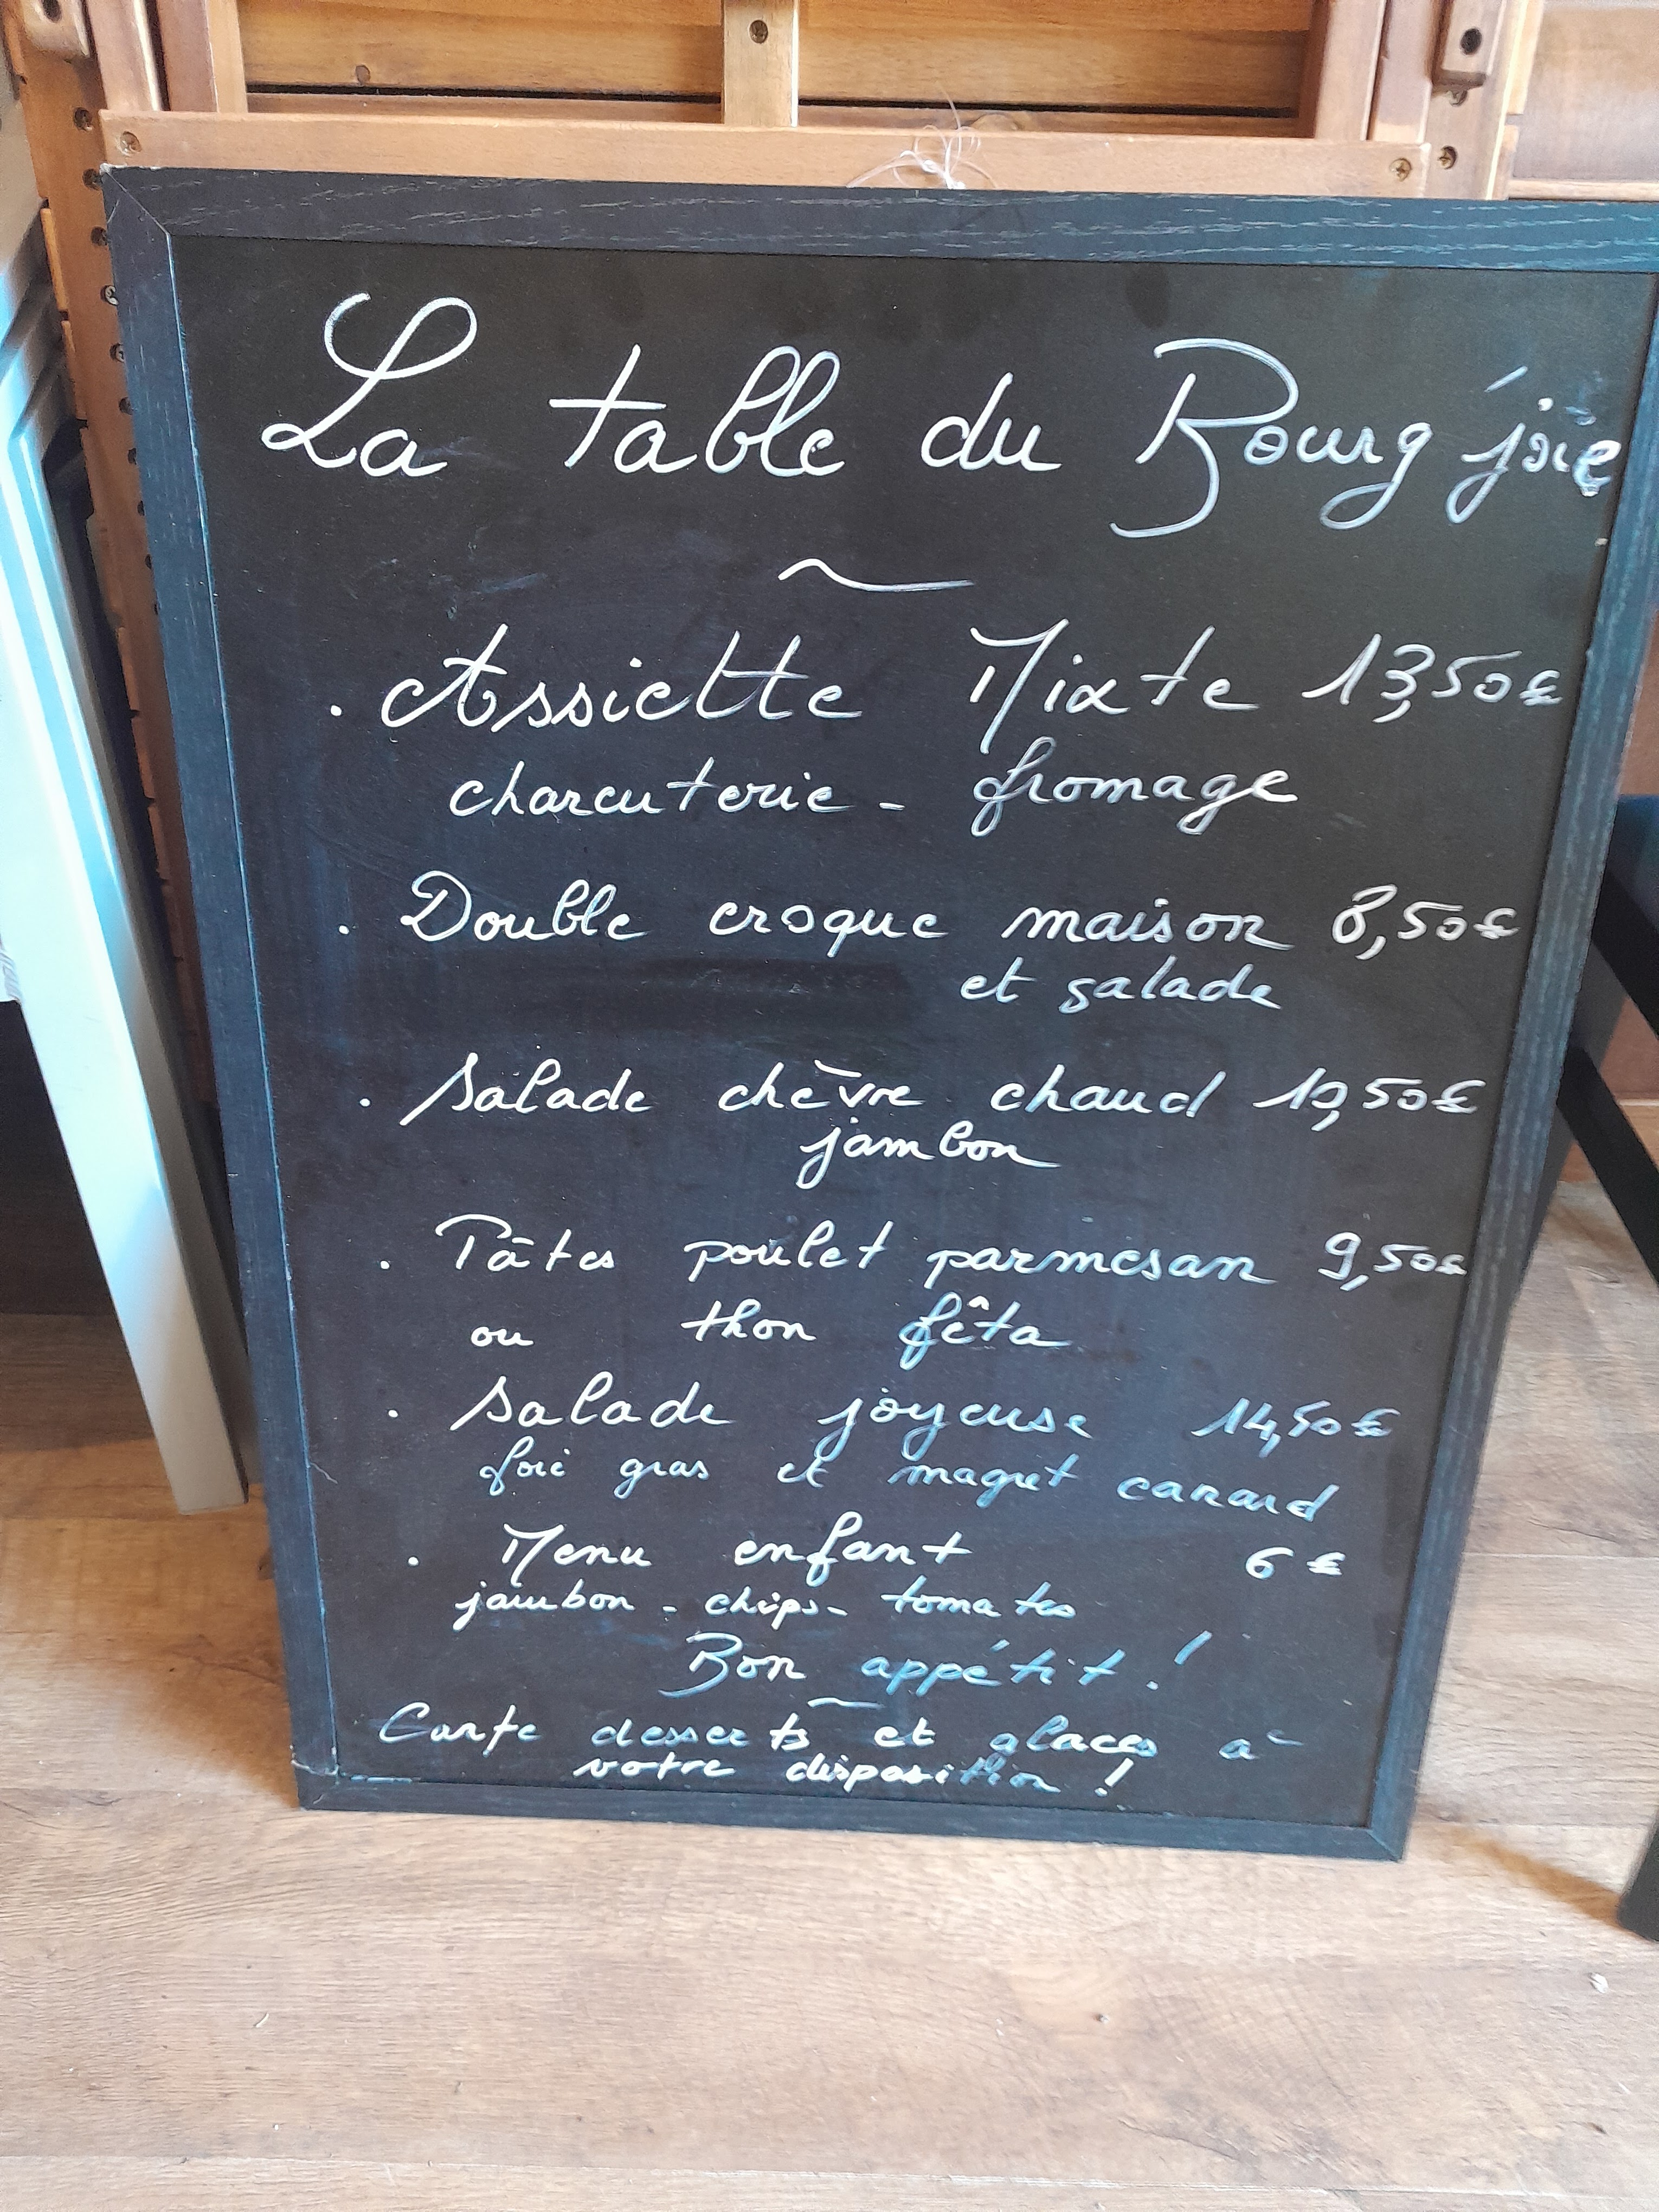 La table du Bourg'joie
~
. Assiette Mixte 13,50€
charcuterie - fromage
. Double croque maison 8,50€
et salade
. Salade chèvre chaud 10,50€
jambon
. Pâtes poulet parmesan 9,50€
ou thon fêta
. Salade joyeuse 14,50€
foie gras et magret canard
. Menu enfant 6€
jambon - chips - tomates
Bon appétit !
~
Carte desserts et glaces à
votre disposition !